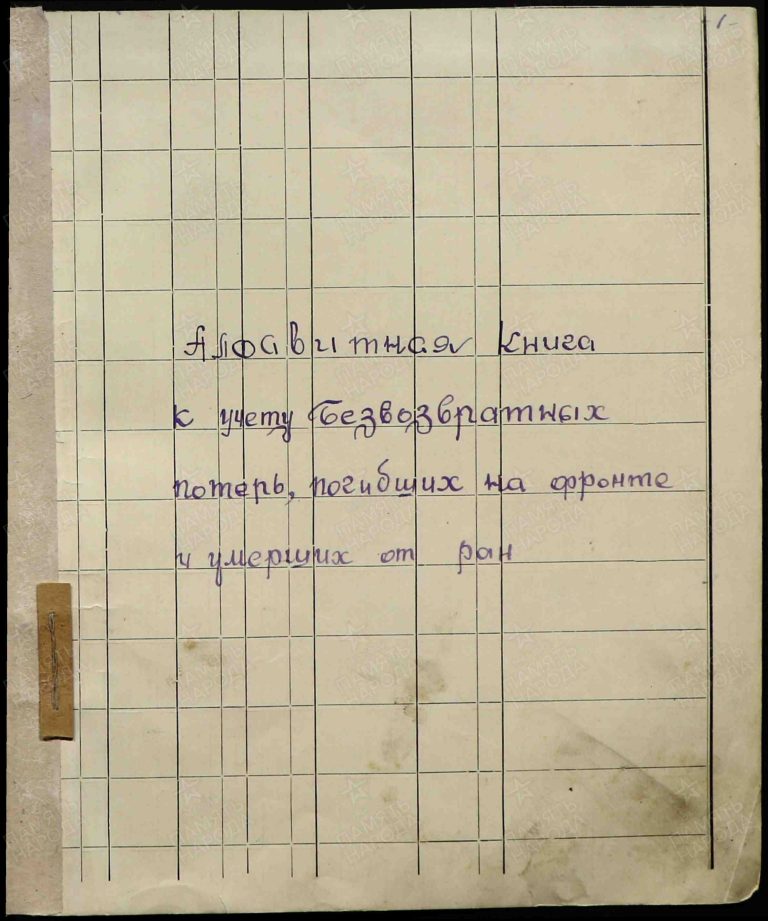 1-
Алфавитная книга
к учету безвозвратных
потерь, погибших на фронте
и умерших от ран